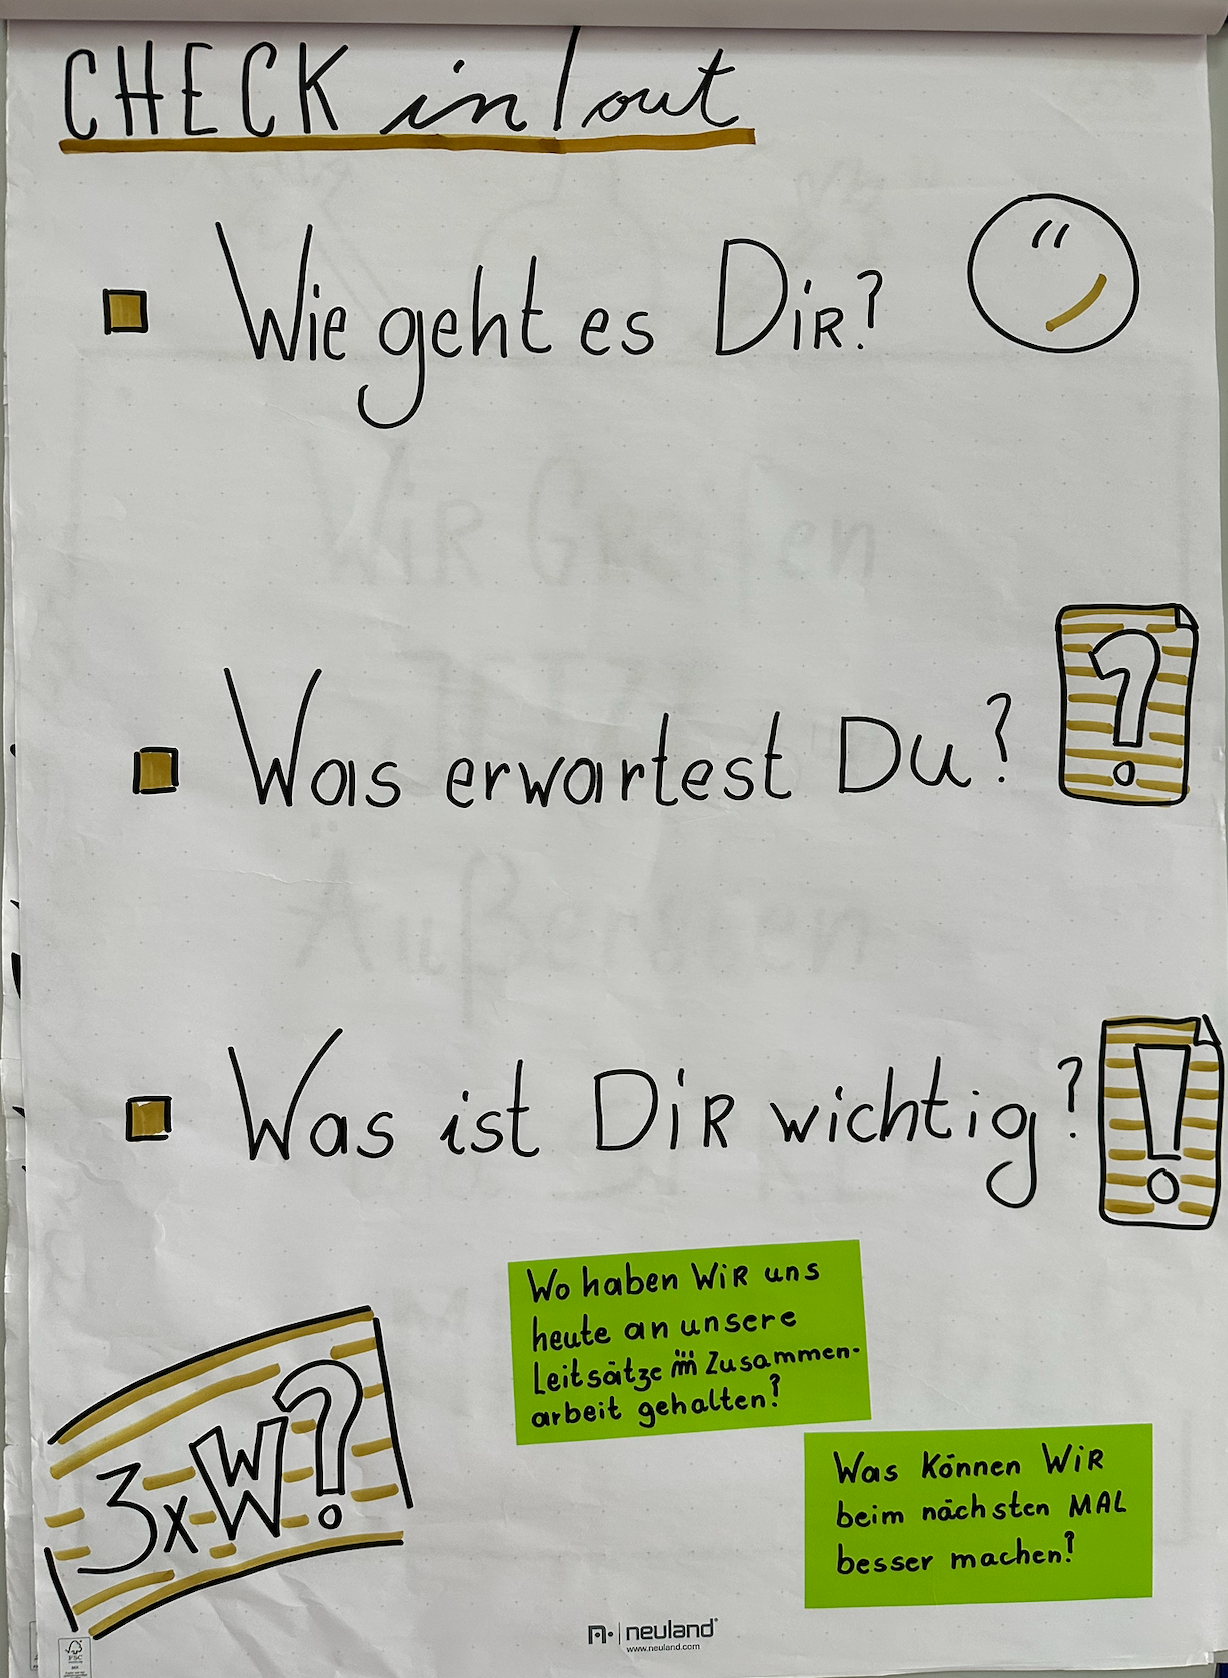 CHECK in/out
Wie geht es Dir?
?
Was erwartest Du?
!
Was ist Dir wichtig?
Wo haben Wir uns
heute an unsere
Leitsätze Zusammen-
arbeit gehalten?
3xW?
Was können Wir
beim nächsten MAL
besser machen?
neuland
www.neuland.com
FSC
MIX